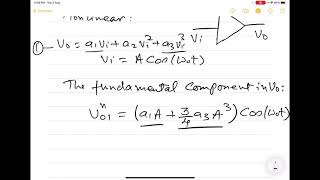 nonlinear:
Vi Vo
① Vo = a₁Vi + a₂Vi² + a₃Vi³
Vi = A Cos(ωot)
The fundamental component in Vo:
Vo1ⁿ = (a₁A + 3/4 a₃A³) Cos(ωot)